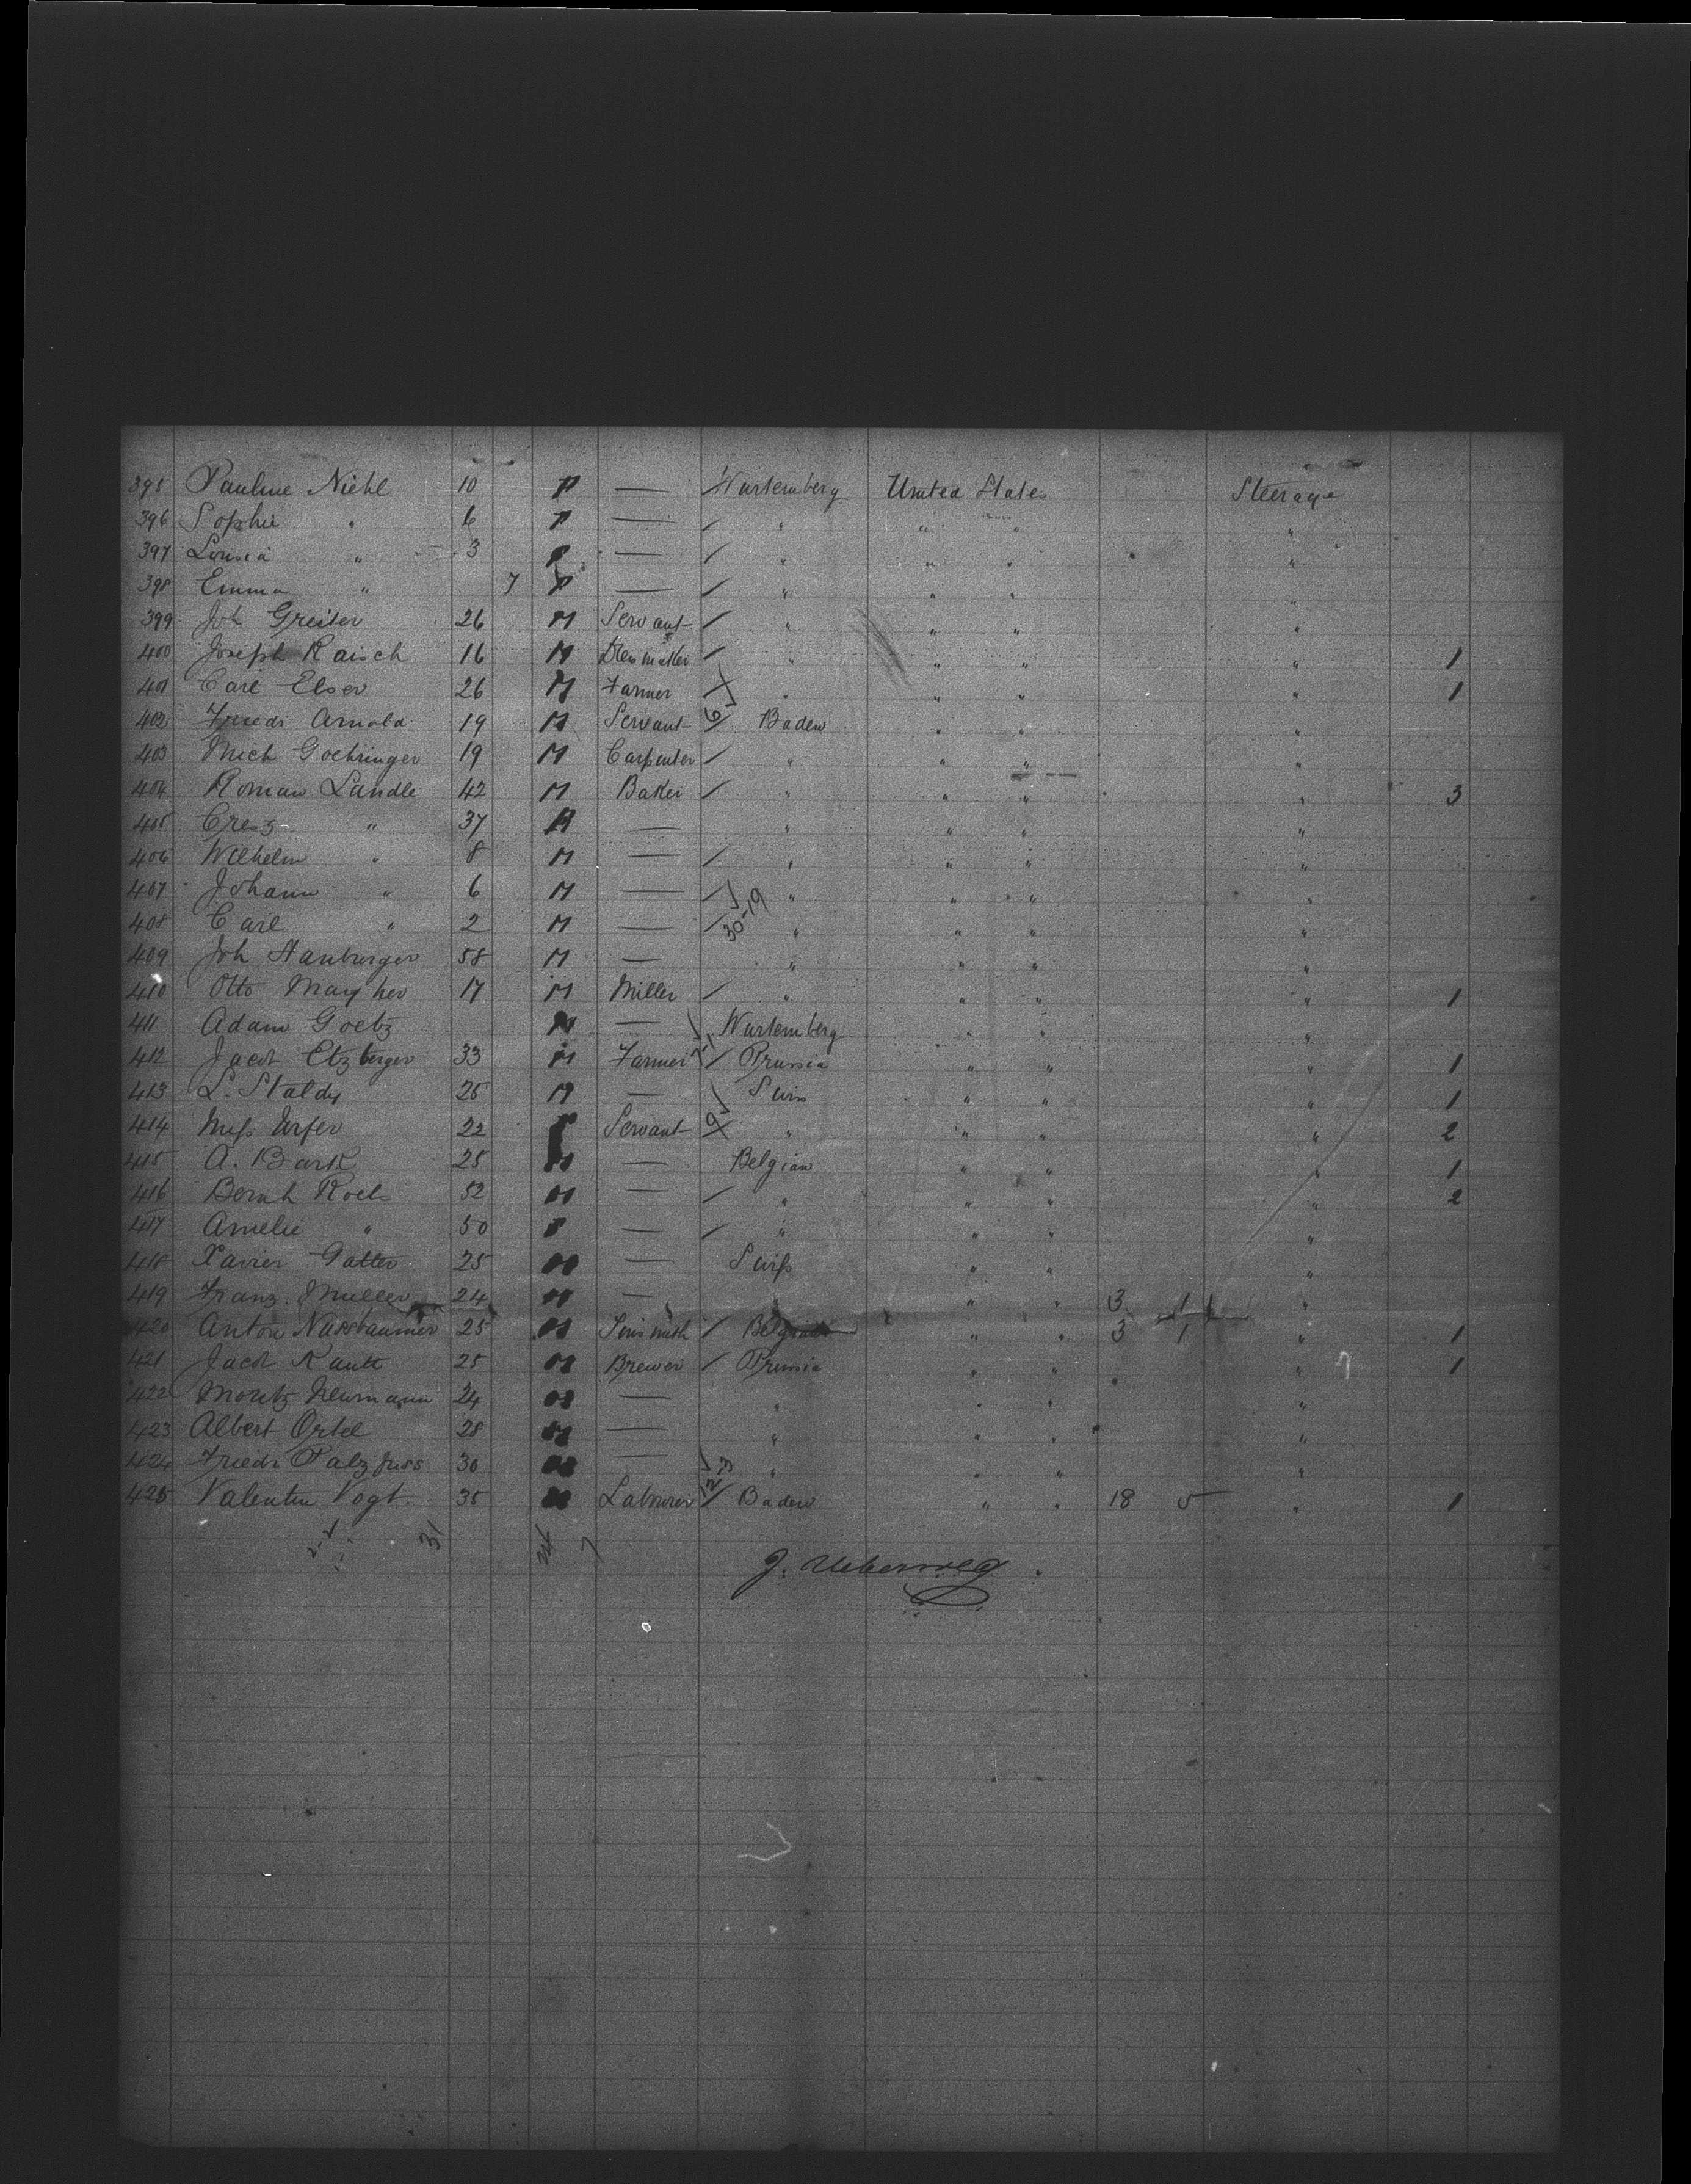 395 Pauline Niehl 10 F — / Wurtemberg United States Steerage
396 Sophie " 6 F — / " " " "
397 Lousia " 3 F — / " " " "
398 Emma " 7 F — / " " " "
399 Joh Greiter 26 M Servant / " " " "
400 Joseph Raisch 16 M / " " " " 1
401 Carl Elser 26 M Farmer / " " " " 1
402 Friedr Arnold 19 M Servant 6/ Baden " " "
403 Mich Goehringer 19 M Carpenter / " " " "
404 Roman Landle 42 M Baker / " " " " 3
405 Cresz " 37 — " " " "
406 Wilhelm " 8 M — / " " " "
407 Johann " 6 M — / " " " "
408 Carl " 2 M — / 30-19 " " " "
409 Joh Hanburger 58 M — " " " "
410 Otto Mayher 17 M Miller / " " " " 1
411 Adam Goetz M — Wurtemberg " " "
412 Jacob Etzberger 33 M Farmer / Prussia " " " 1
413 L. Staldy 25 M — Swiss " " " 1
414 Miss Urfer 22 F Servant 9 " " " " 2
415 A. Bark 25 M — Belgian " " " 1
416 Bernh Roels 52 M — / " " " " 2
417 Amelie " 50 F — / " " " "
418 Xavier Gatter 25 M — Swiss " " "
419 Franz Muller 24 M — " " 3 1 "
420 Anton Nassbaumer 25 M / " " 3 1 " 1
421 Jacob Kautt 25 M Brewer / Prussia " " " 1
422 Moritz Neumann 24 M — " " " "
423 Albert Ortel 28 M — " " " "
424 Friedr Palzfuss 30 M — " " " "
425 Valentin Vogt. 35 M Labourer 12-3 / Baden " " 18 5 " 1
31 24 7
J. Ueberweg